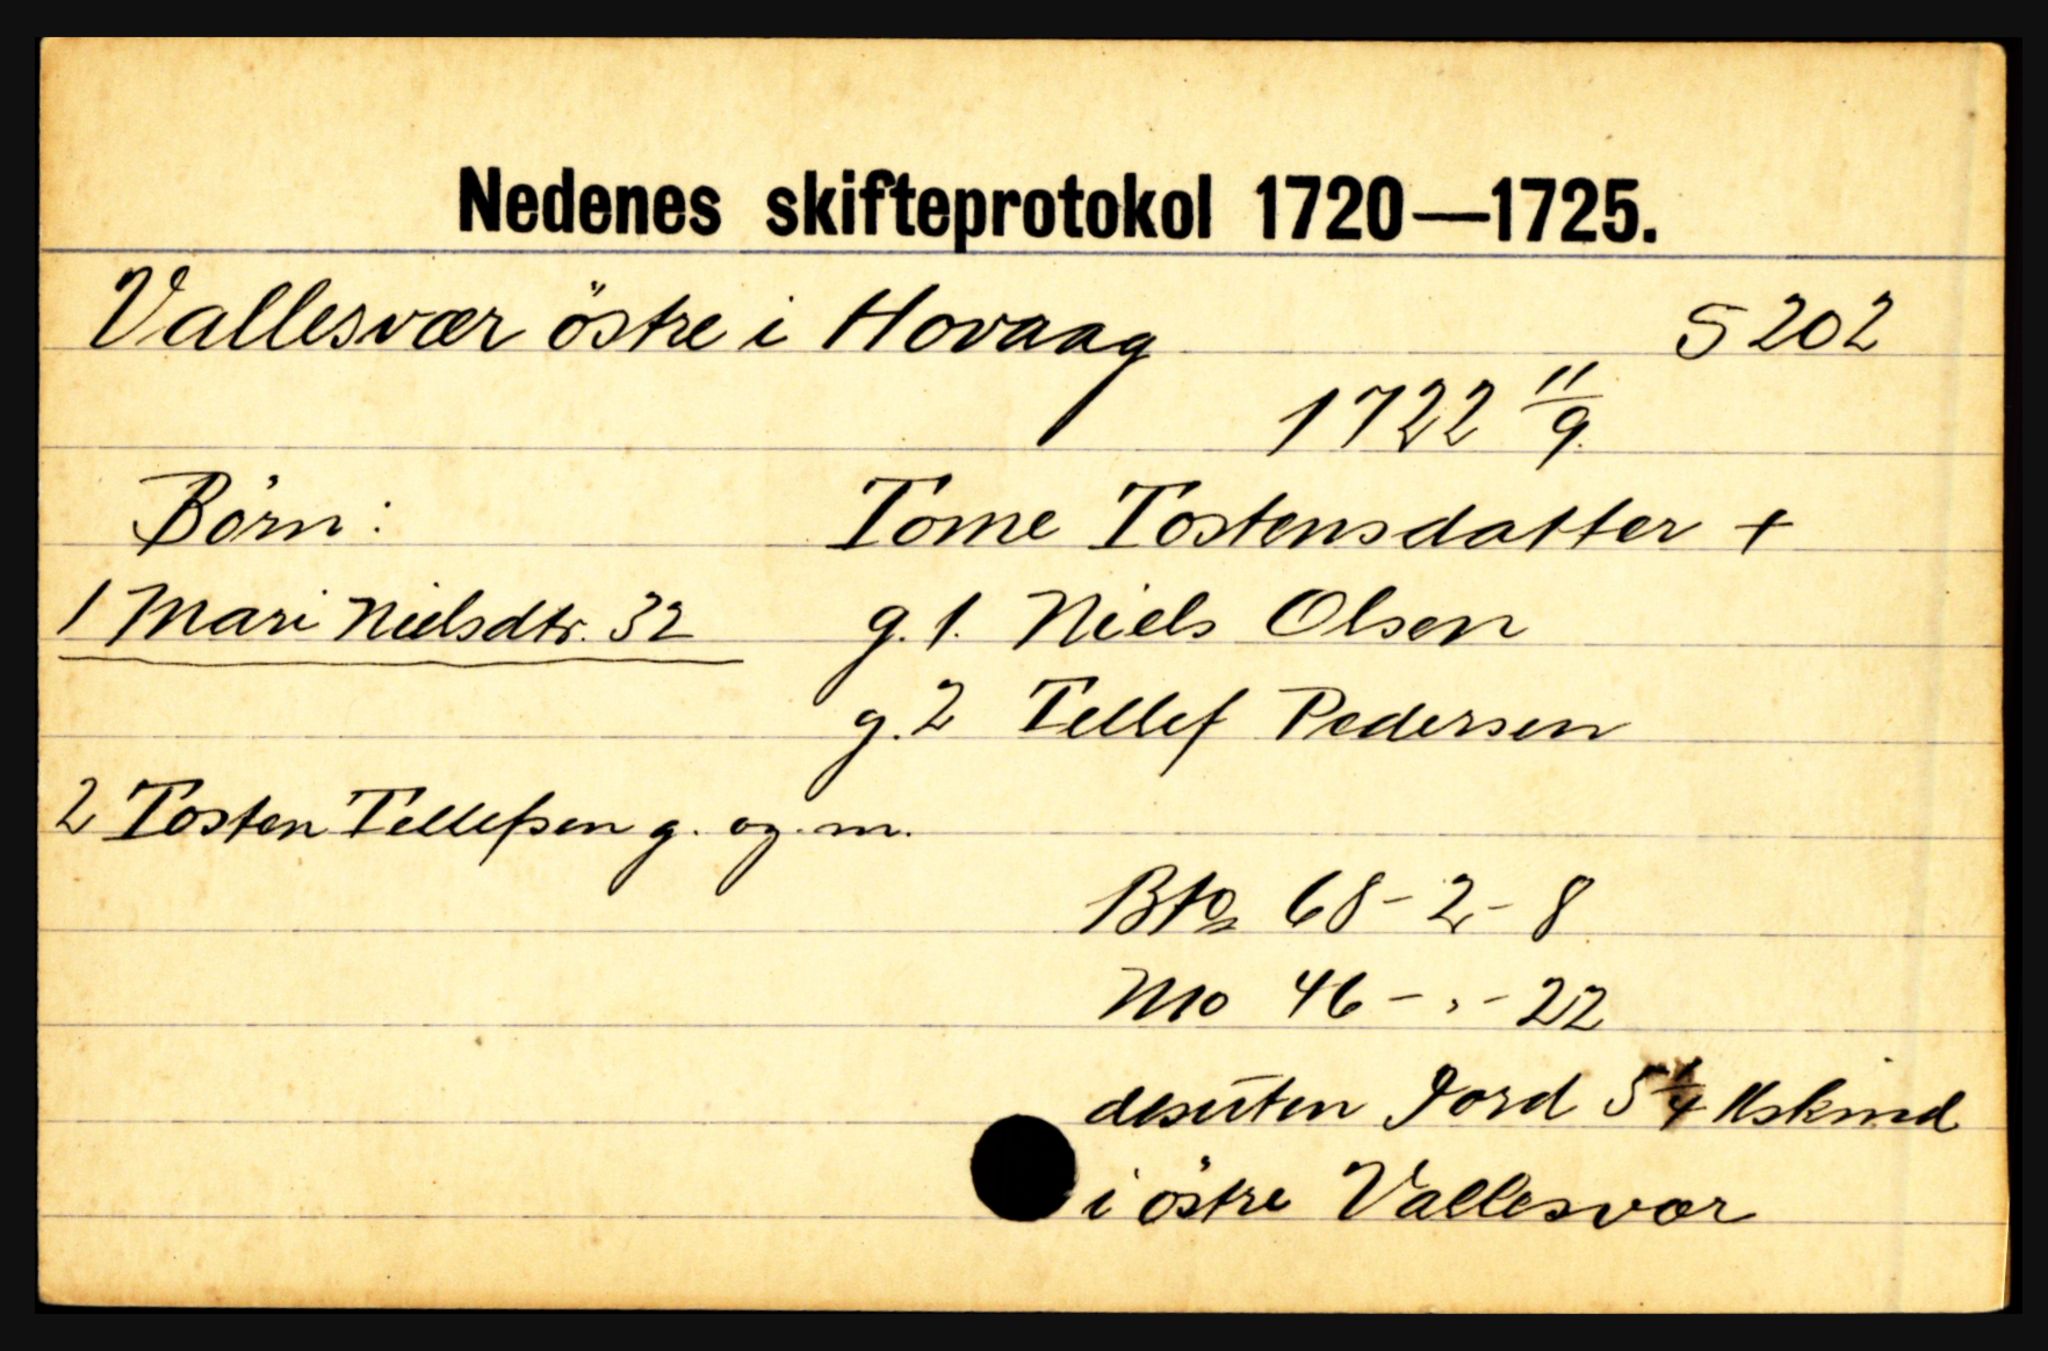 Nedenes skifteprotokol 1720—1725.
Vallesvær östre i Hovaag S 202
1722 11/9.
Börn: Tome Tostensdatter +
1 Mari Nielsdtr. 32 g. 1. Niels Olsen
g. 2 Tellef Pedersen
2 Tosten Tellefsen g. og m.
Bto 68 - 2 - 8
Nto 46 - , - 22
desuten Jord 5 1/4 Kskind
i östre Vallesvær